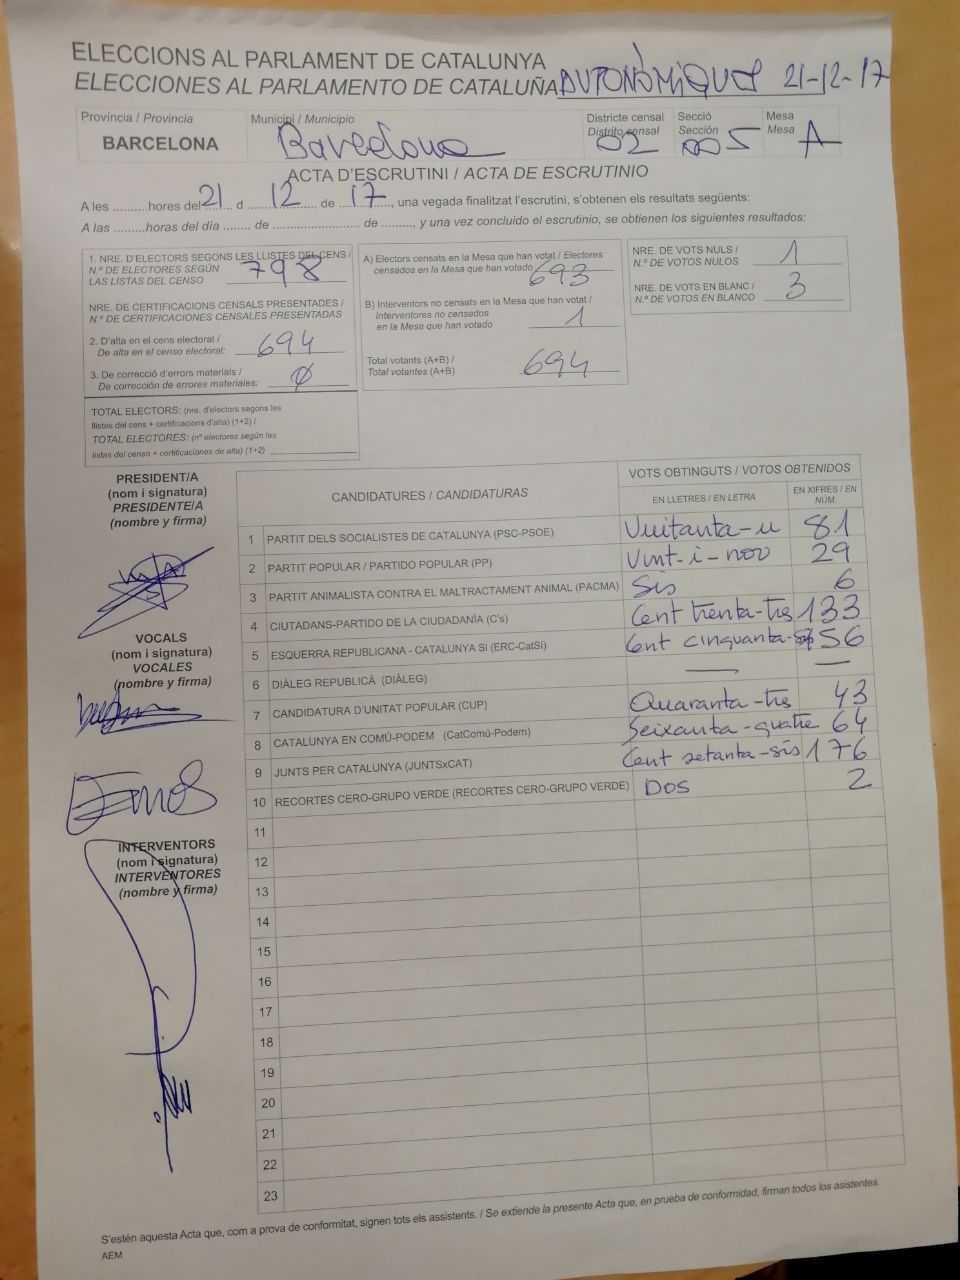 ELECCIONS AL PARLAMENT DE CATALUNYA
ELECCIONES AL PARLAMENTO DE CATALUÑA AUTONÒMIQUES 21-12-17
Província / Provincia
BARCELONA
Municipi / Municipio
Barcelona
Districte censal
Distrito censal
02
Secció
Sección
005
Mesa
Mesa
A
ACTA D'ESCRUTINI / ACTA DE ESCRUTINIO
A les ..........hores del 21 d 12 de 17, una vegada finalitzat l'escrutini, s'obtenen els resultats següents:
A las .........horas del día ........ de ......................... de ........., y una vez concluido el escrutinio, se obtienen los siguientes resultados:
1. NRE. D'ELECTORS SEGONS LES LLISTES DEL CENS /
N.º DE ELECTORES SEGÚN
LAS LISTAS DEL CENSO 798
NRE. DE CERTIFICACIONS CENSALS PRESENTADES /
N.º DE CERTIFICACIONES CENSALES PRESENTADAS
2. D'alta en el cens electoral /
De alta en el censo electoral: 694
3. De correcció d'errors materials /
De corrección de errores materiales: Ø
TOTAL ELECTORS: (nre. d'electors segons les
llistes del cens + certificacions d'alta) (1+2) /
TOTAL ELECTORES: (nº electores según las
listas del censo + certificaciones de alta) (1+2)
A) Electors censats en la Mesa que han votat / Electores
censados en la Mesa que han votado 693
B) Interventors no censats en la Mesa que han votat /
Interventores no censados
en la Mesa que han votado 1
Total votants (A+B) /
Total votantes (A+B) 694
NRE. DE VOTS NULS /
N.º DE VOTOS NULOS 1
NRE. DE VOTS EN BLANC /
N.º DE VOTOS EN BLANCO 3
PRESIDENT/A
(nom i signatura)
PRESIDENTE/A
(nombre y firma)
VOCALS
(nom i signatura)
VOCALES
(nombre y firma)
INTERVENTORS
(nom i signatura)
INTERVENTORES
(nombre y firma)
CANDIDATURES / CANDIDATURAS
VOTS OBTINGUTS / VOTOS OBTENIDOS
EN LLETRES / EN LETRA
EN XIFRES / EN NÚM.
1 PARTIT DELS SOCIALISTES DE CATALUNYA (PSC-PSOE) Vuitanta-u 81
2 PARTIT POPULAR / PARTIDO POPULAR (PP) Vint-i-nov 29
3 PARTIT ANIMALISTA CONTRA EL MALTRACTAMENT ANIMAL (PACMA) Sis 6
4 CIUTADANS-PARTIDO DE LA CIUDADANÍA (C's) Cent trenta-tres 133
5 ESQUERRA REPUBLICANA - CATALUNYA SI (ERC-CatSí) Cent cinquanta-sis 156
6 DIÀLEG REPUBLICÀ (DIÀLEG) — —
7 CANDIDATURA D'UNITAT POPULAR (CUP) Quaranta-tres 43
8 CATALUNYA EN COMÚ-PODEM (CatComú-Podem) Seixanta-quatre 64
9 JUNTS PER CATALUNYA (JUNTSxCAT) Cent setanta-sis 176
10 RECORTES CERO-GRUPO VERDE (RECORTES CERO-GRUPO VERDE) DOS 2
11
12
13
14
15
16
17
18
19
20
21
22
23
S'estén aquesta Acta que, com a prova de conformitat, signen tots els assistents. / Se extiende la presente Acta que, en prueba de conformidad, firman todos los asistentes.
AEM